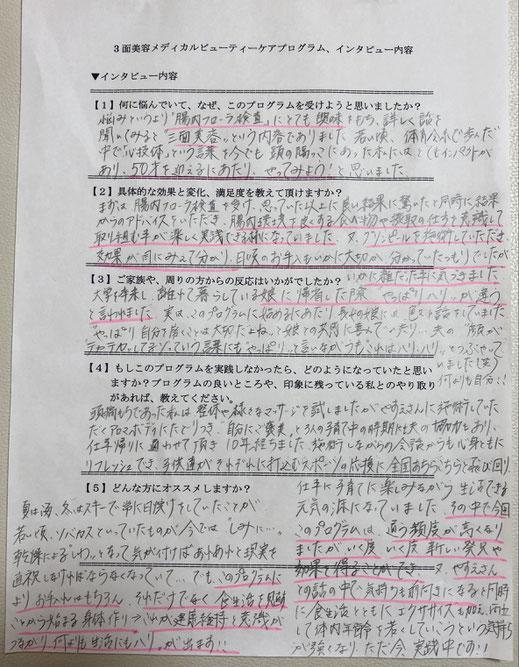 3面美容メディカルビューティーケアプログラム、インタビュー内容
▼インタビュー内容
【1】何に悩んでいて、なぜ、このプログラムを受けようと思いましたか?
悩みというより"腸内フローラ検査"にとても興味をもち、詳しく話を
聞いてみると"三面美容"という内容でありました。若い頃、体育会系で歩んだ
中で"心技体"という言葉を今でも頭の隅っこにあった私にはとてもインパクトが
あり、50才を迎えるにあたり、やってみよう!と思いました。
【2】具体的な効果と変化、満足度を教えて頂けますか?
まずは腸内フローラ検査を受け、思っていた以上に良い結果に驚いたと同時に、結果
からのアドバイスをいただき、腸内環境を良くする食べ物や摂取の仕方を意識して
取り組む事が楽しく実践できる様になっていました。又、グリーンピールを施術していただき
効果が目にみえて分かり、日頃のお手入れもいかに大切か、分かっていたつもりでしたが
いかに雑だった事に気づきました。
【3】ご家族や、周りの方からの反応はいかがでしたか?
大学を終え、離れて暮らしている娘に帰省した際"やっぱりハリが違う"
と言われました。実は、このプログラムに始めるにあたり長女の娘には色々と話をしていました。
"やっぱり自分を磨くことは大切だよね"と娘との共同に喜んで
テカテカしてるゾっていう言葉にも"やっぱり"と言いながらつも"これはハリ、ハリ"とつぶやって
いました(笑)
何よりも自分!!
【4】もしこのプログラムを実践しなかったら、どのようになっていたと思い
ますか?プログラムの良いところや、印象に残っている私とのやり取り
があれば、教えてください。
頭痛もちであった私は整体や様々なマッサージを試しましたがやすえさんに施術していた
だくアロマボディにたどりつき、自分にご褒美、と3人の子育て中の時期には夫の協力もあり、
仕事帰りに通わせて頂き10年経ちました。施術しながらの会話からも心身ともに
リフレッシュでき、子供達がそれぞれに打込むスポーツの応援に全国あちらこちらと飛び回り、
仕事に子育てに楽しみながら生活できる
元気の源になっていました。その中で今回
このプログラムは、通う頻度が高くなり
ましたがいく度いく度新しい発見や
効果を得ることができ 又、やすえさん
との話の中で気持ちも前向きになると同時
に食生活とともにエクササイズも加え、内面
として体内年齢を若くしていこうという気持ち
が強くなり、ただ今、実践中です!!
【5】どんな方にオススメしますか?
夏は海、冬はスキーで常に日焼けをしていたことが
若い頃、ソバカスといっていたものが今では"しみ"に…。
乾燥によるしわ…となって気が付けばあれあれと現実を
直視しなければならなくなっていて…でも、このプログラムに
よりお手入れはもちろん、それだけでなく食生活を見直す
ことから始まる身体作り→これが健康維持と意識が
つながり、何よりも生活にもハリが出ます!!